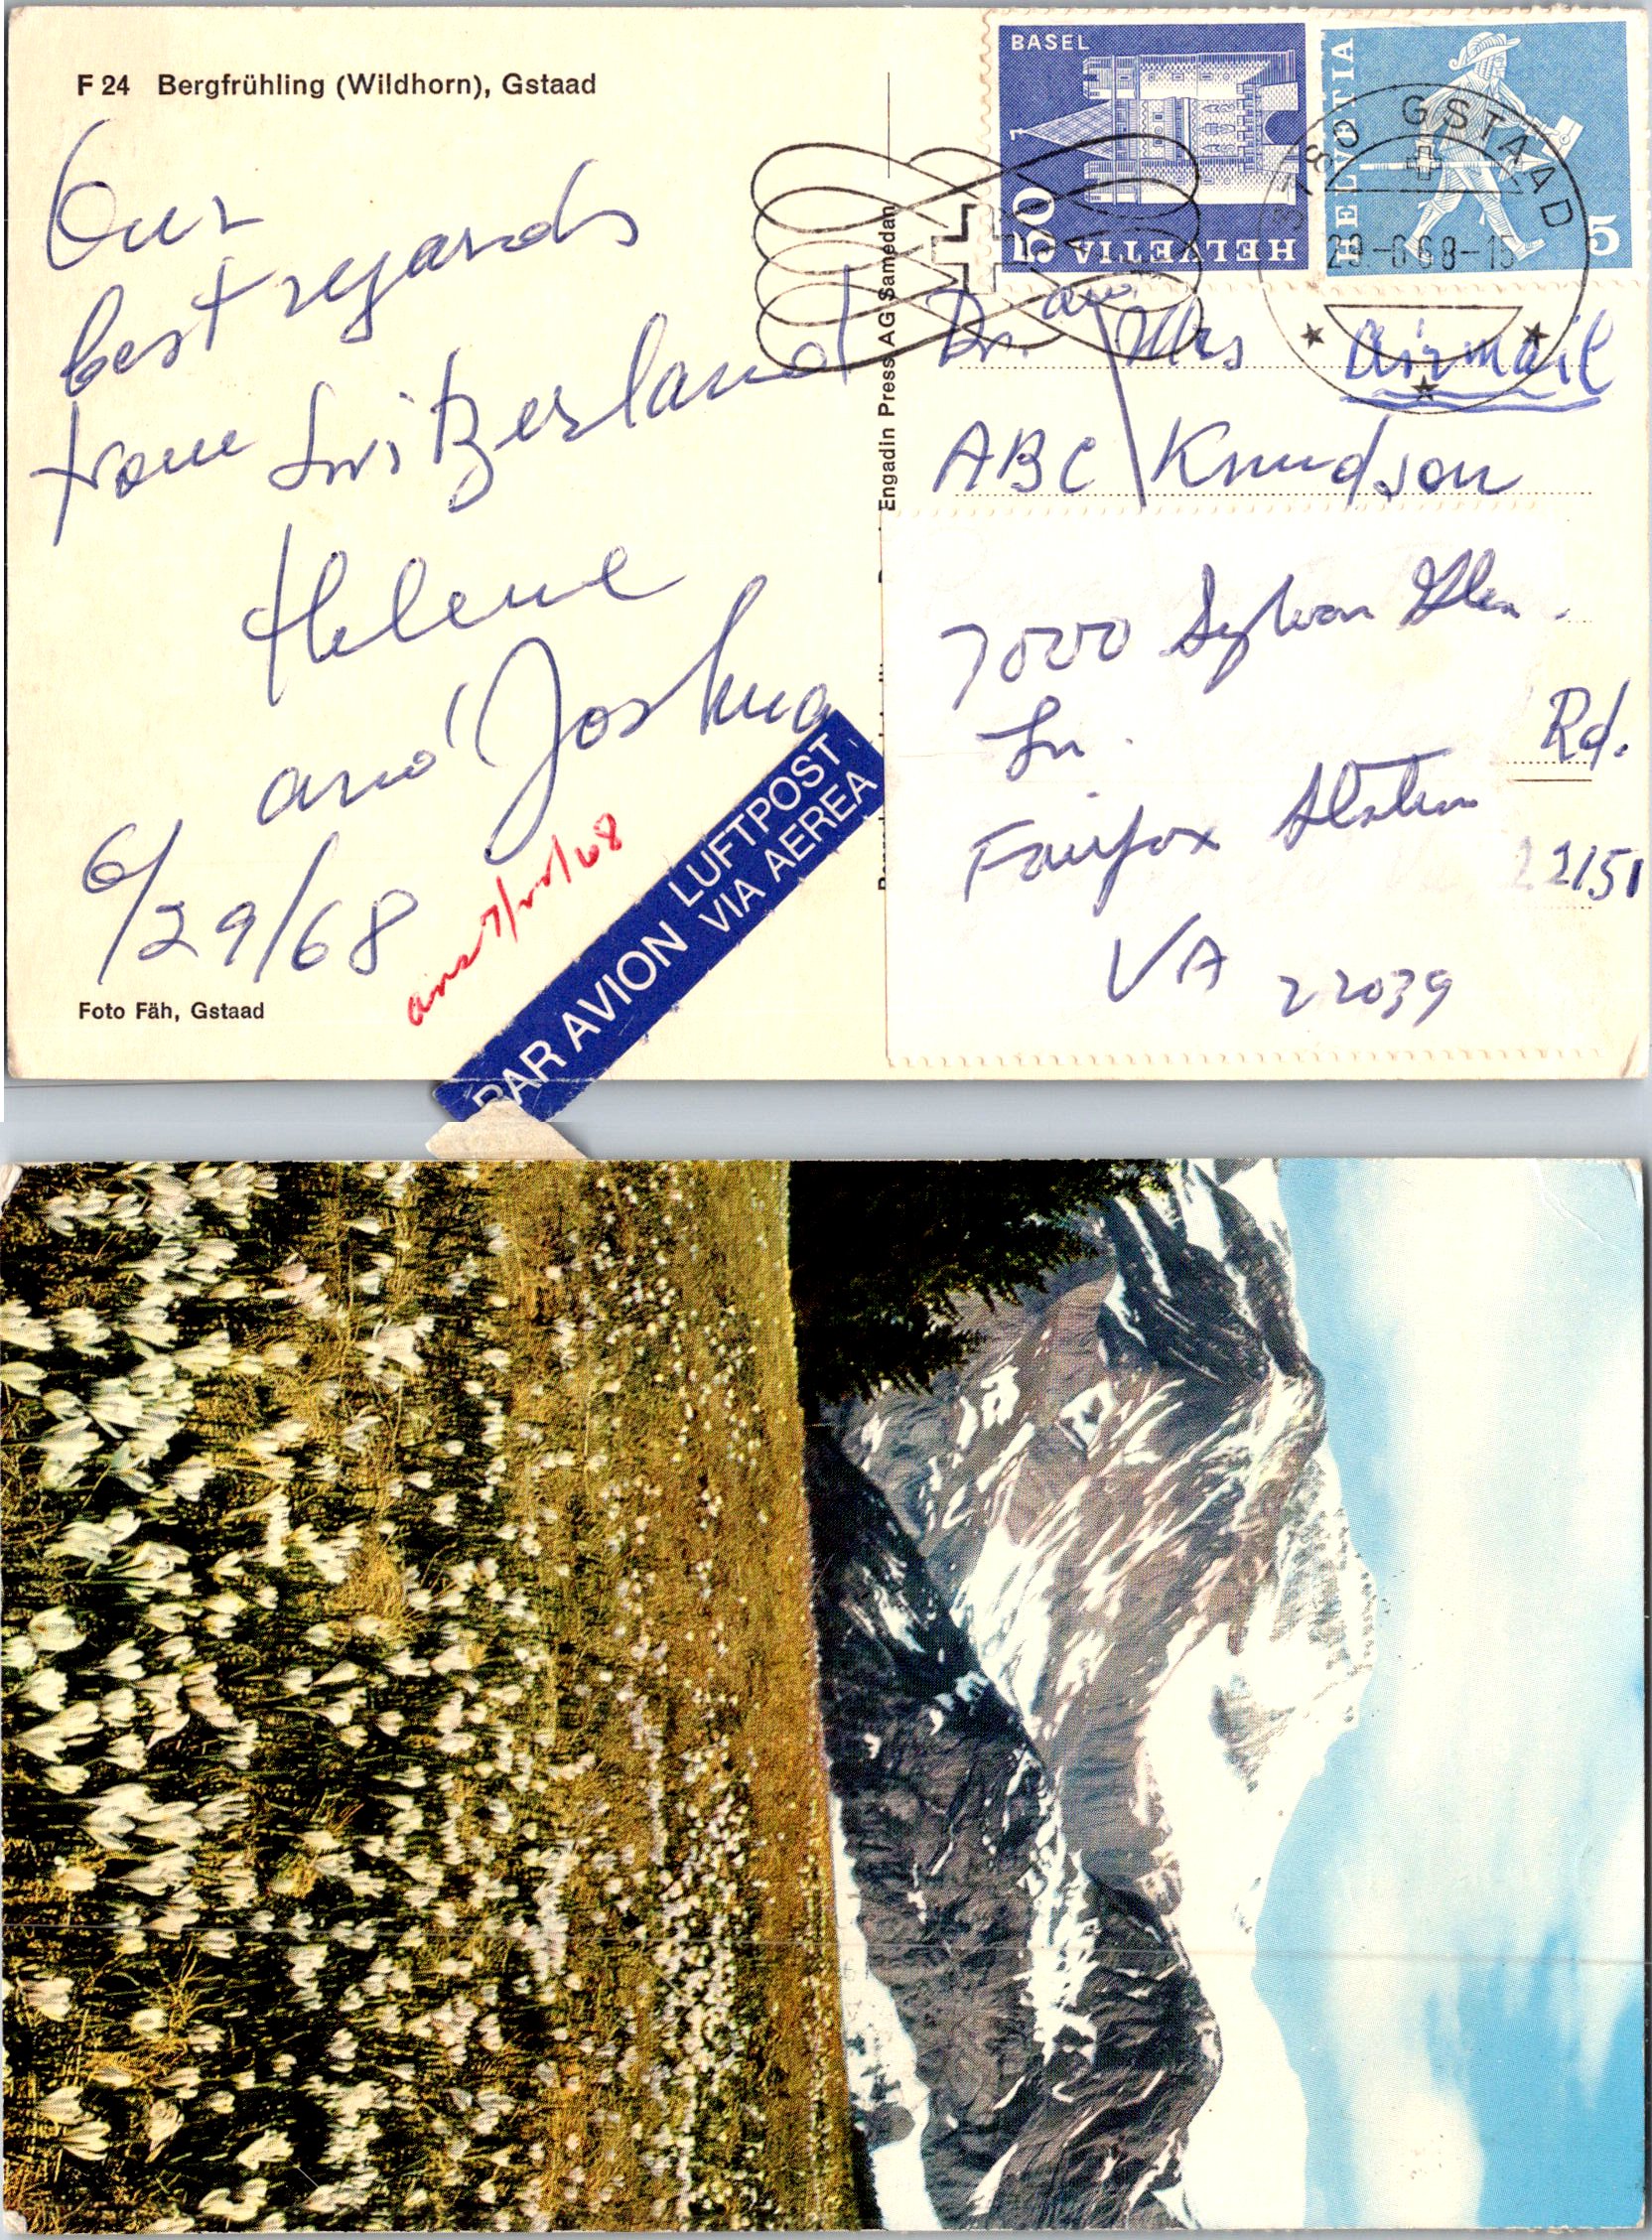 F 24 Bergfrühling (Wildhorn), Gstaad
Our
best regards
from Switzerland
Helene
and Joshua
6/29/68
Foto Fäh, Gstaad
PAR AVION
LUFTPOST
VIA AEREA
Engadin Press AG Samedan
BASEL
HELVETIA
HELVETIA
5
3780 GSTAAD
Dr. and Mrs
Airmail
ABC Knudson
7000 Sylvan Glen
Ln.
Rd.
Fairfox Station
22151
VA 22039